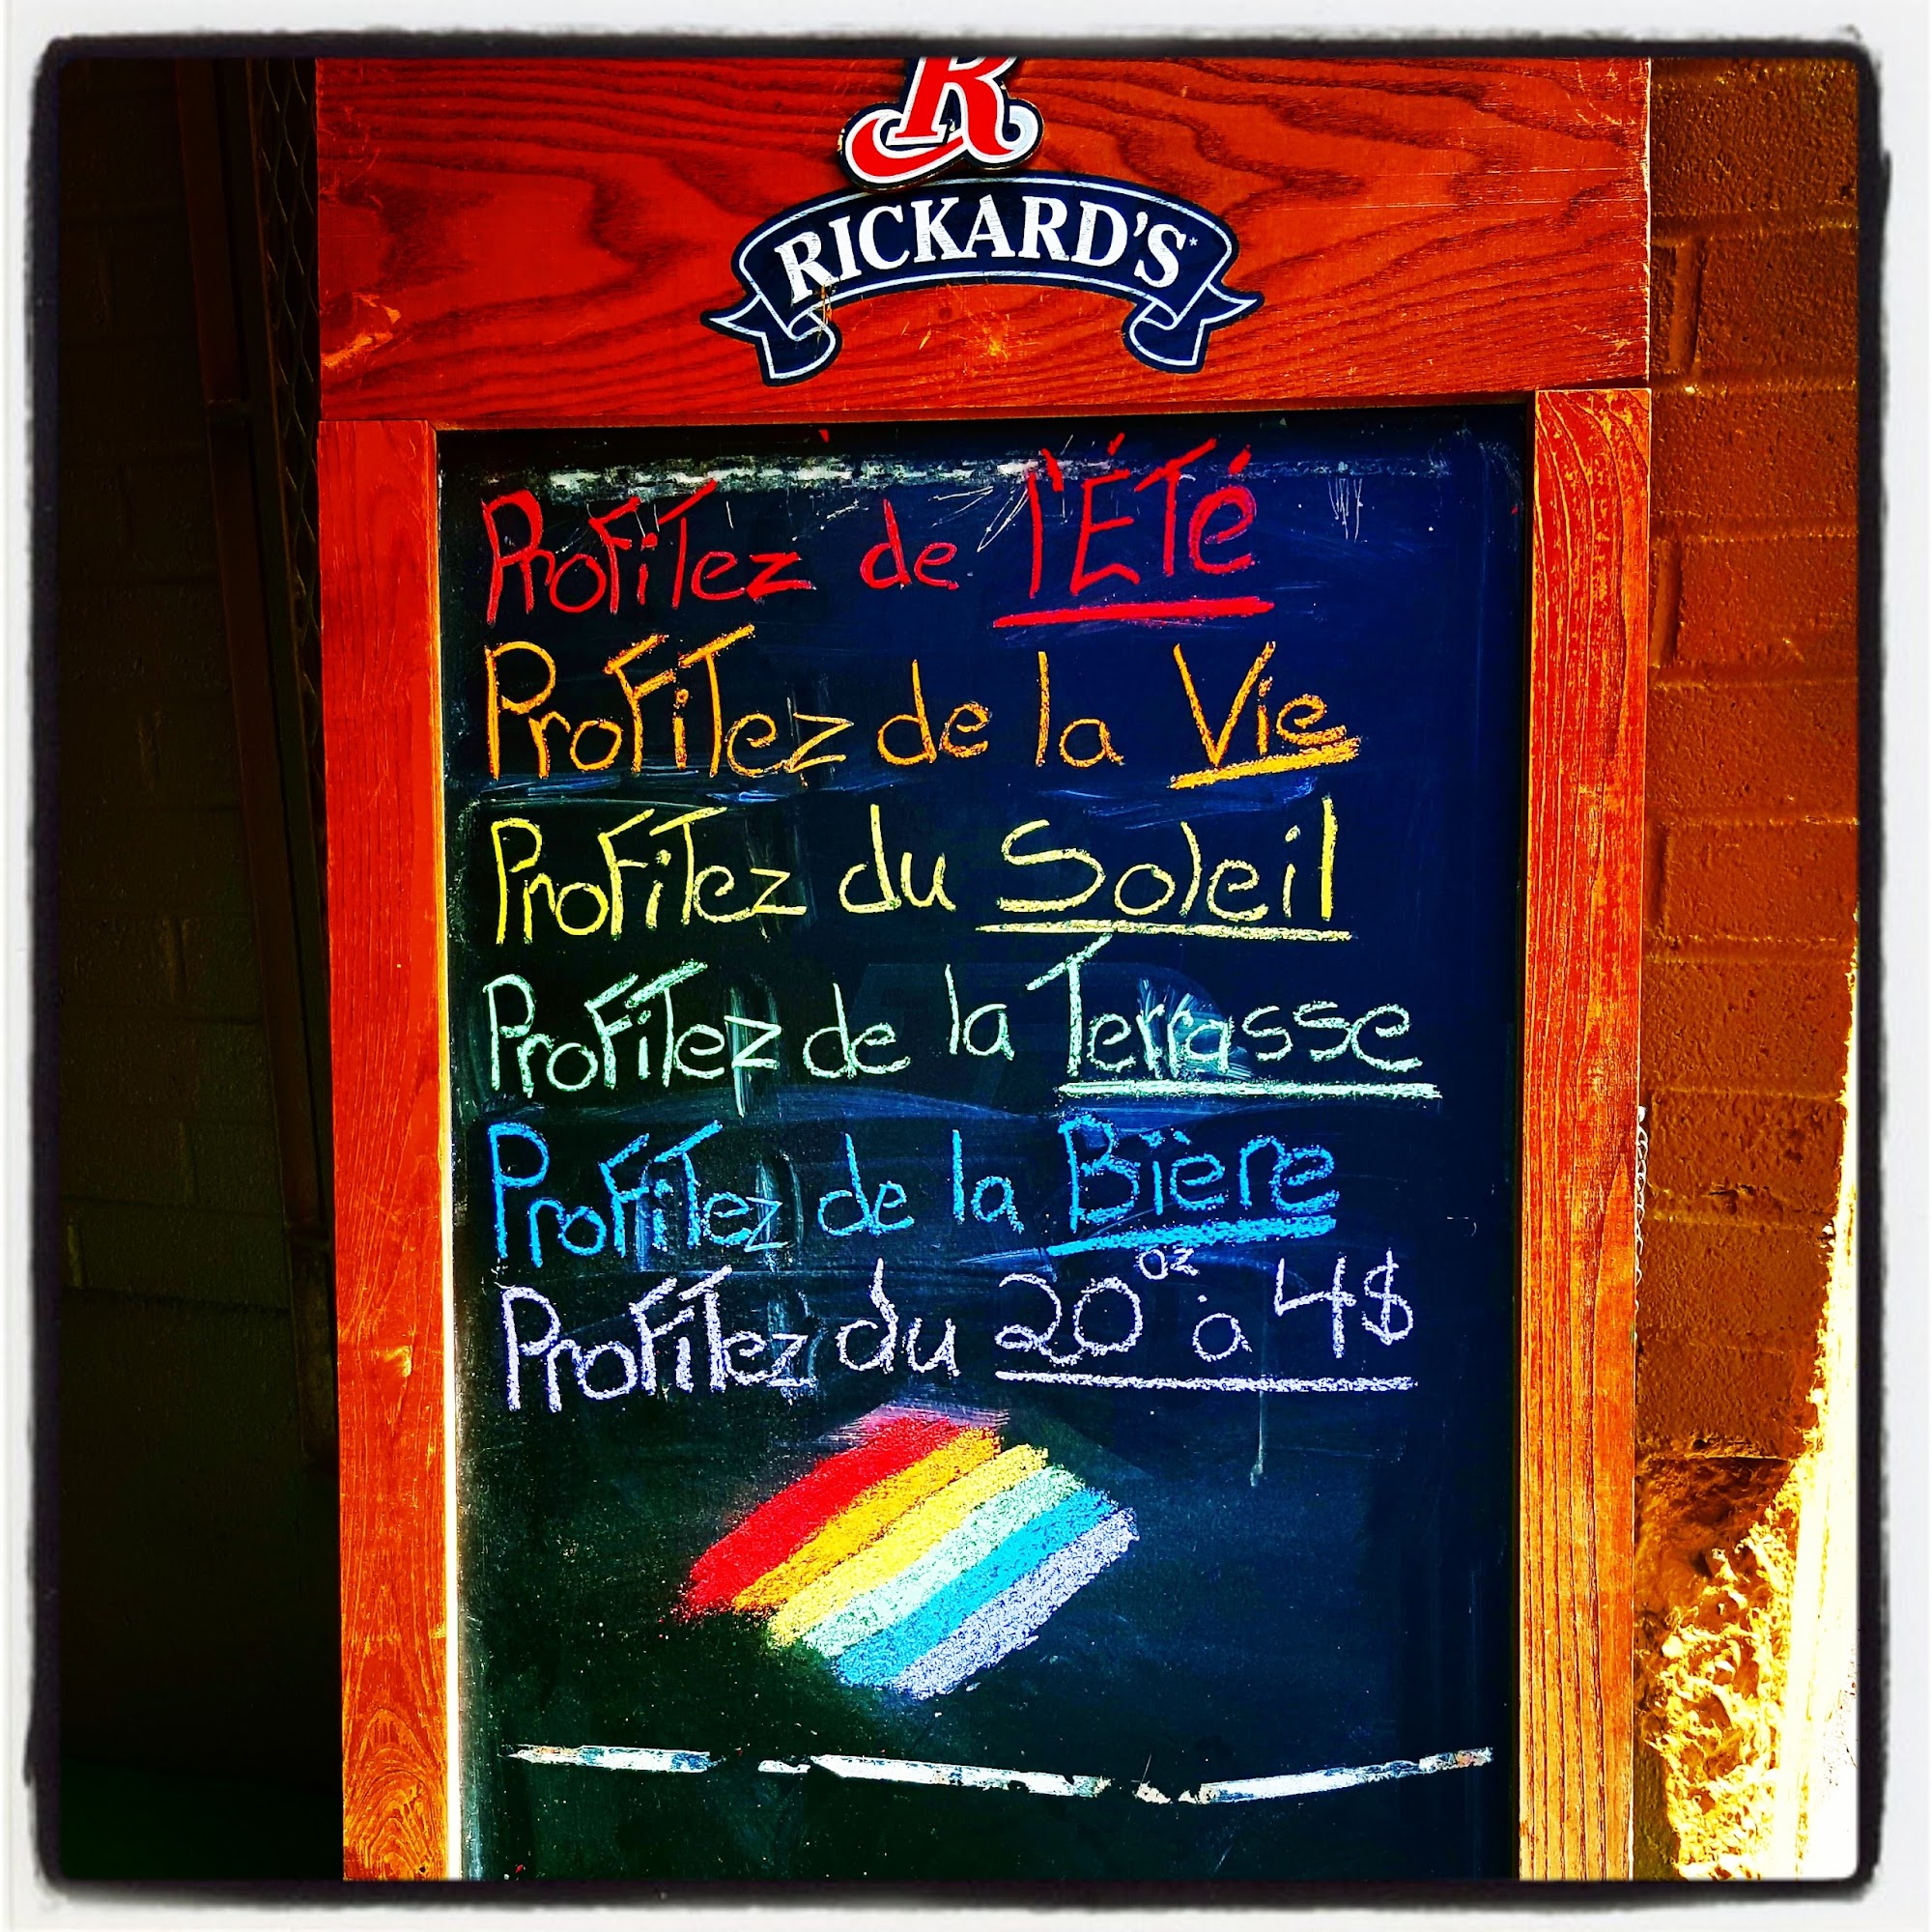 R
RICKARD'S
Profitez de l'Été
Profitez de la Vie
Profitez du Soleil
Profitez de la Terrasse
Profitez de la Bière
Profitez du 20oz à 4$